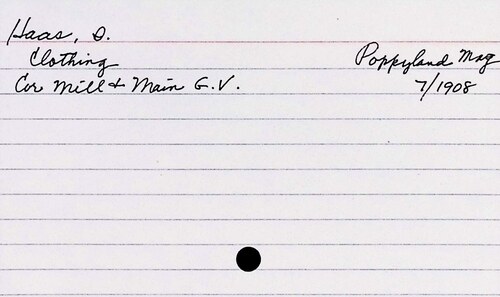 Haas, D.
Clothing
Poppyland Mag
Cor Mill & Main G.V.
7/1908